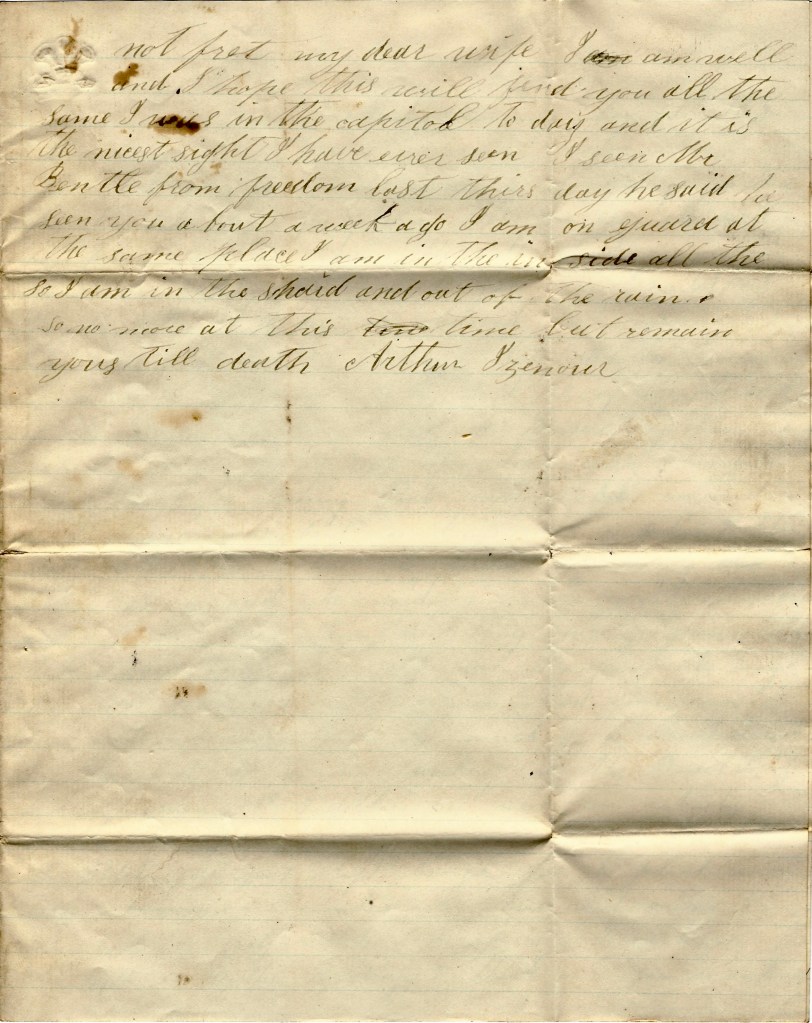 not fret my dear wife I am am well
and I hope this will find you all the
same I was in the capitol to day and it is
the nicest sight I have ever seen I seen Mr
Bentle from freedom last thirs day he said he
seen you a bout a week a go I am on guard at
the same place I am in the in side all the
so I am in the shaid and out of the rain.
so no more at this time time but remain
yous till death Arthur Izenour